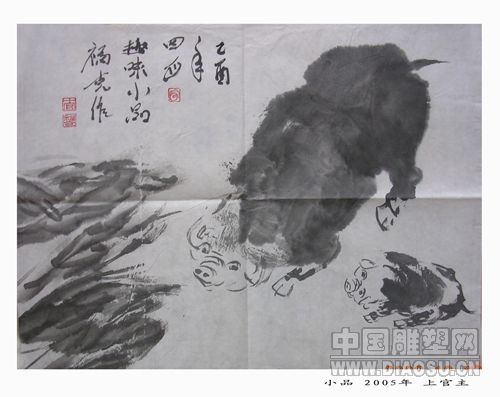 乙酉
年
四月
趣味小品
福光作
中国雕塑网
WWW.DIAOSU.CN
小品 2005年 上官主